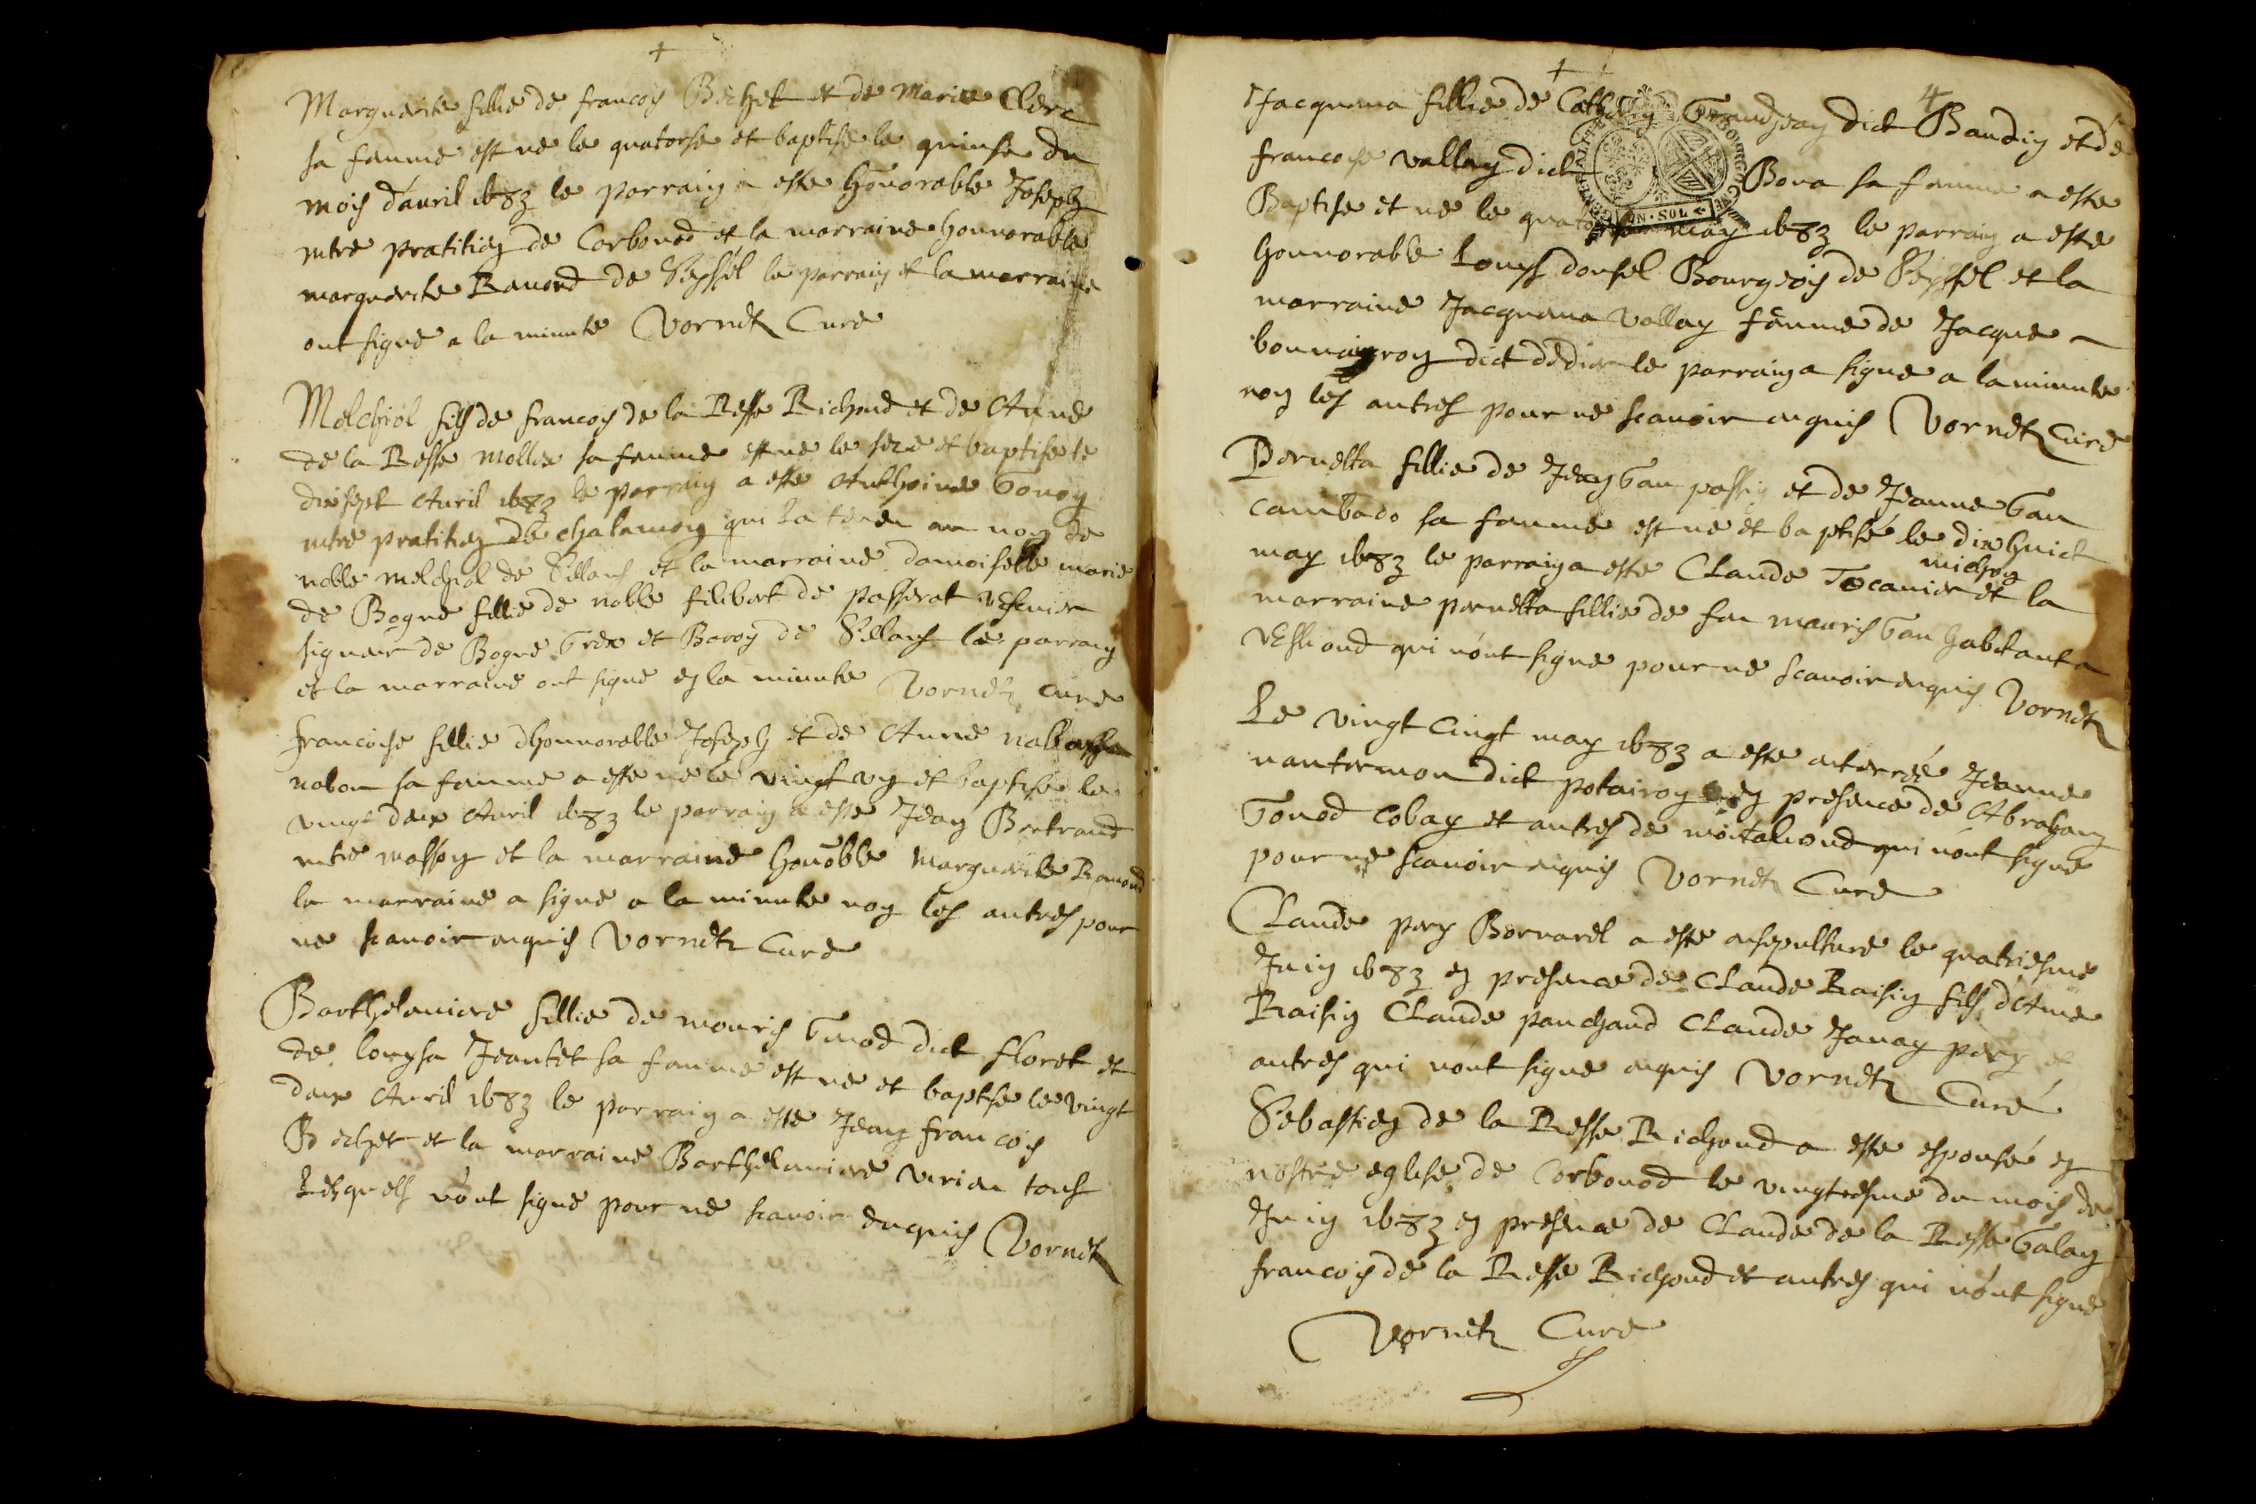 Marguerite fillie de francois Bechet et de Marie Clerc
sa femme est ne le quatorse et baptise le quinse du
mois d'auril 1683 le parraig a este honorable Joseph
ntre pratitieg de Corbonod et la marraine honnorable
marguerite Ramond de Seyssel le parraig et la marraine
ont signe a la minute Vornetz Cure
Melchiol fils de francois de la Besse Richond et de Anne
de la Besse mollex sa femme est ne le seze et baptise le
dixsept Auril 1683 le parraig a este Anthoine Gonog
ntre pratitieg de chatamog qui la tenu au nog de
noble melchiol de Sillans et la marraine damoiselle marie
de Bogne fillie de noble filibert de passerat
signeur de Bogne Grex et Barog de Sillans le parraig
et la marraine ont signe eg la minute Vornetz Cure
francoise fillie dhonnorable Joseph et de Anne
sa femme a este ne le vingt vg et baptise le
vingt deux Auril 1683 le parraig a este Jeag Bertrand
ntre massog et la marraine honoble Marguerite Ramond
la marraine a signe a la minute nog les autres pour
ne scauoir enquis Vornetz Cure
Barthelemiere fillie de mouris Gonod dict floret et
de louysa Jeantet sa femme est ne et baptise le vingt
deux Auril 1683 le parraig a este Jeag francois
Bechet et la marraine Barthelemiere tous
lesquels n'ont signe pour ne scauoir enquis Vornetz
4
Jacquema fillie de Cathelig Grandjeag dict Baudig et de
francoise vallay dict Bona sa femme a este
Baptise et ne le may 1683 le parraig a este
honnorable Louys donsel Bourgeois de Seyssel et la
marraine Jacquema vallay femme de Jacque
dict dedier le parraig a signe a la minute
nog les autres pour ne scauoir enquis Vornetz Cure
Pernetta fillie de Jeag Gau passig et de Jeanne Gau
Cambado sa femme est ne et baptisé le dixhuict
may 1683 le parraig a este Claude Tocanier et la
michog
marraine pernetta fillie de feu mauris Gau habitant a
qui n'ont signe pour ne scauoir enquis Vornetz
Le vingt Cingt may 1683 a este enterreé Jeanne
nantermou dict potairog eg presence de Abraham
Gonod Cobay et autres de qui n'ont signe
pour ne scauoir enquis Vornetz Cure
Claude pery Bornarel a este ensepulture le quatriesme
Juig 1683 eg presence de Claude Raisig fils d'Ame
Raisig Claude panchaud Claude Janay pery et
autres qui n'ont signe enquis Vornetz Curé
Sebastieg de la Besse Richond a este espousé eg
nostre eglise de Corbonod le vingtiesme du mois de
Juig 1683 eg presence de Claude de la Besse Galay
francois de la Besse Richond et autres qui n'ont signe
Vornetz Cure